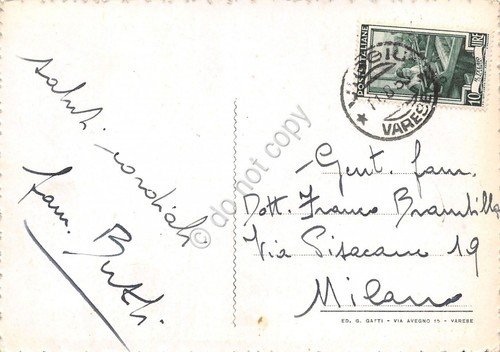 saluti cordiali
fam. Butti
POSTE ITALIANE
LIRE
10
VARESE
Gent. fam.
Dott. Franco Brambilla
Via Pisacane 19
Milano
ED. G. GATTI - VIA AVEGNO 15 - VARESE
© do not copy